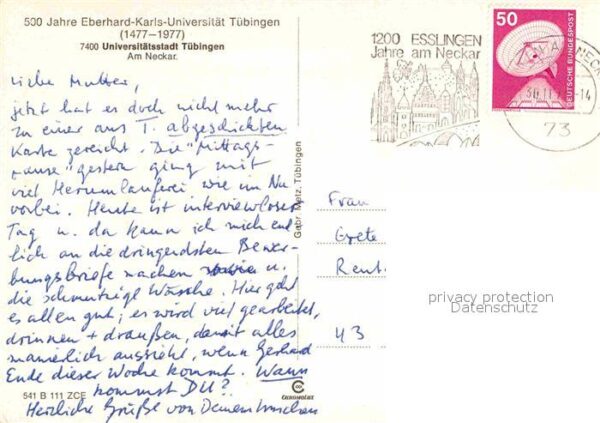 500 Jahre Eberhard-Karls-Universität Tübingen
(1477–1977)
7400 Universitätsstadt Tübingen
Am Neckar.
Liebe Mutter,
jetzt hat es doch nicht mehr
zu einer aus T. abgeschickten
Karte gereicht. Die "Mittags-
pause" gestern ging mit
viel Herumlauferei wie im Nu
vorbei. Heute ist interviewloser
Tag u. da kann ich mich end-
lich an die dringendsten Bewer-
bungsbriefe machen u.
die schmutzige Wäsche. Hier geht
es allen gut; es wird viel gearbeitet,
drinnen + draußen, damit alles
manierlich aussieht, wenn Gerhard
Ende dieser Woche kommt. Wann
kommst DU?
Herzliche Grüße von Deinem
541 B 111 ZCE
Gebr. Metz, Tübingen
1200 ESSLINGEN
Jahre am Neckar
50
DEUTSCHE BUNDESPOST
NECK
30.11.
-14
73
Frau
Grete
Rent
43
privacy protection
Datenschutz